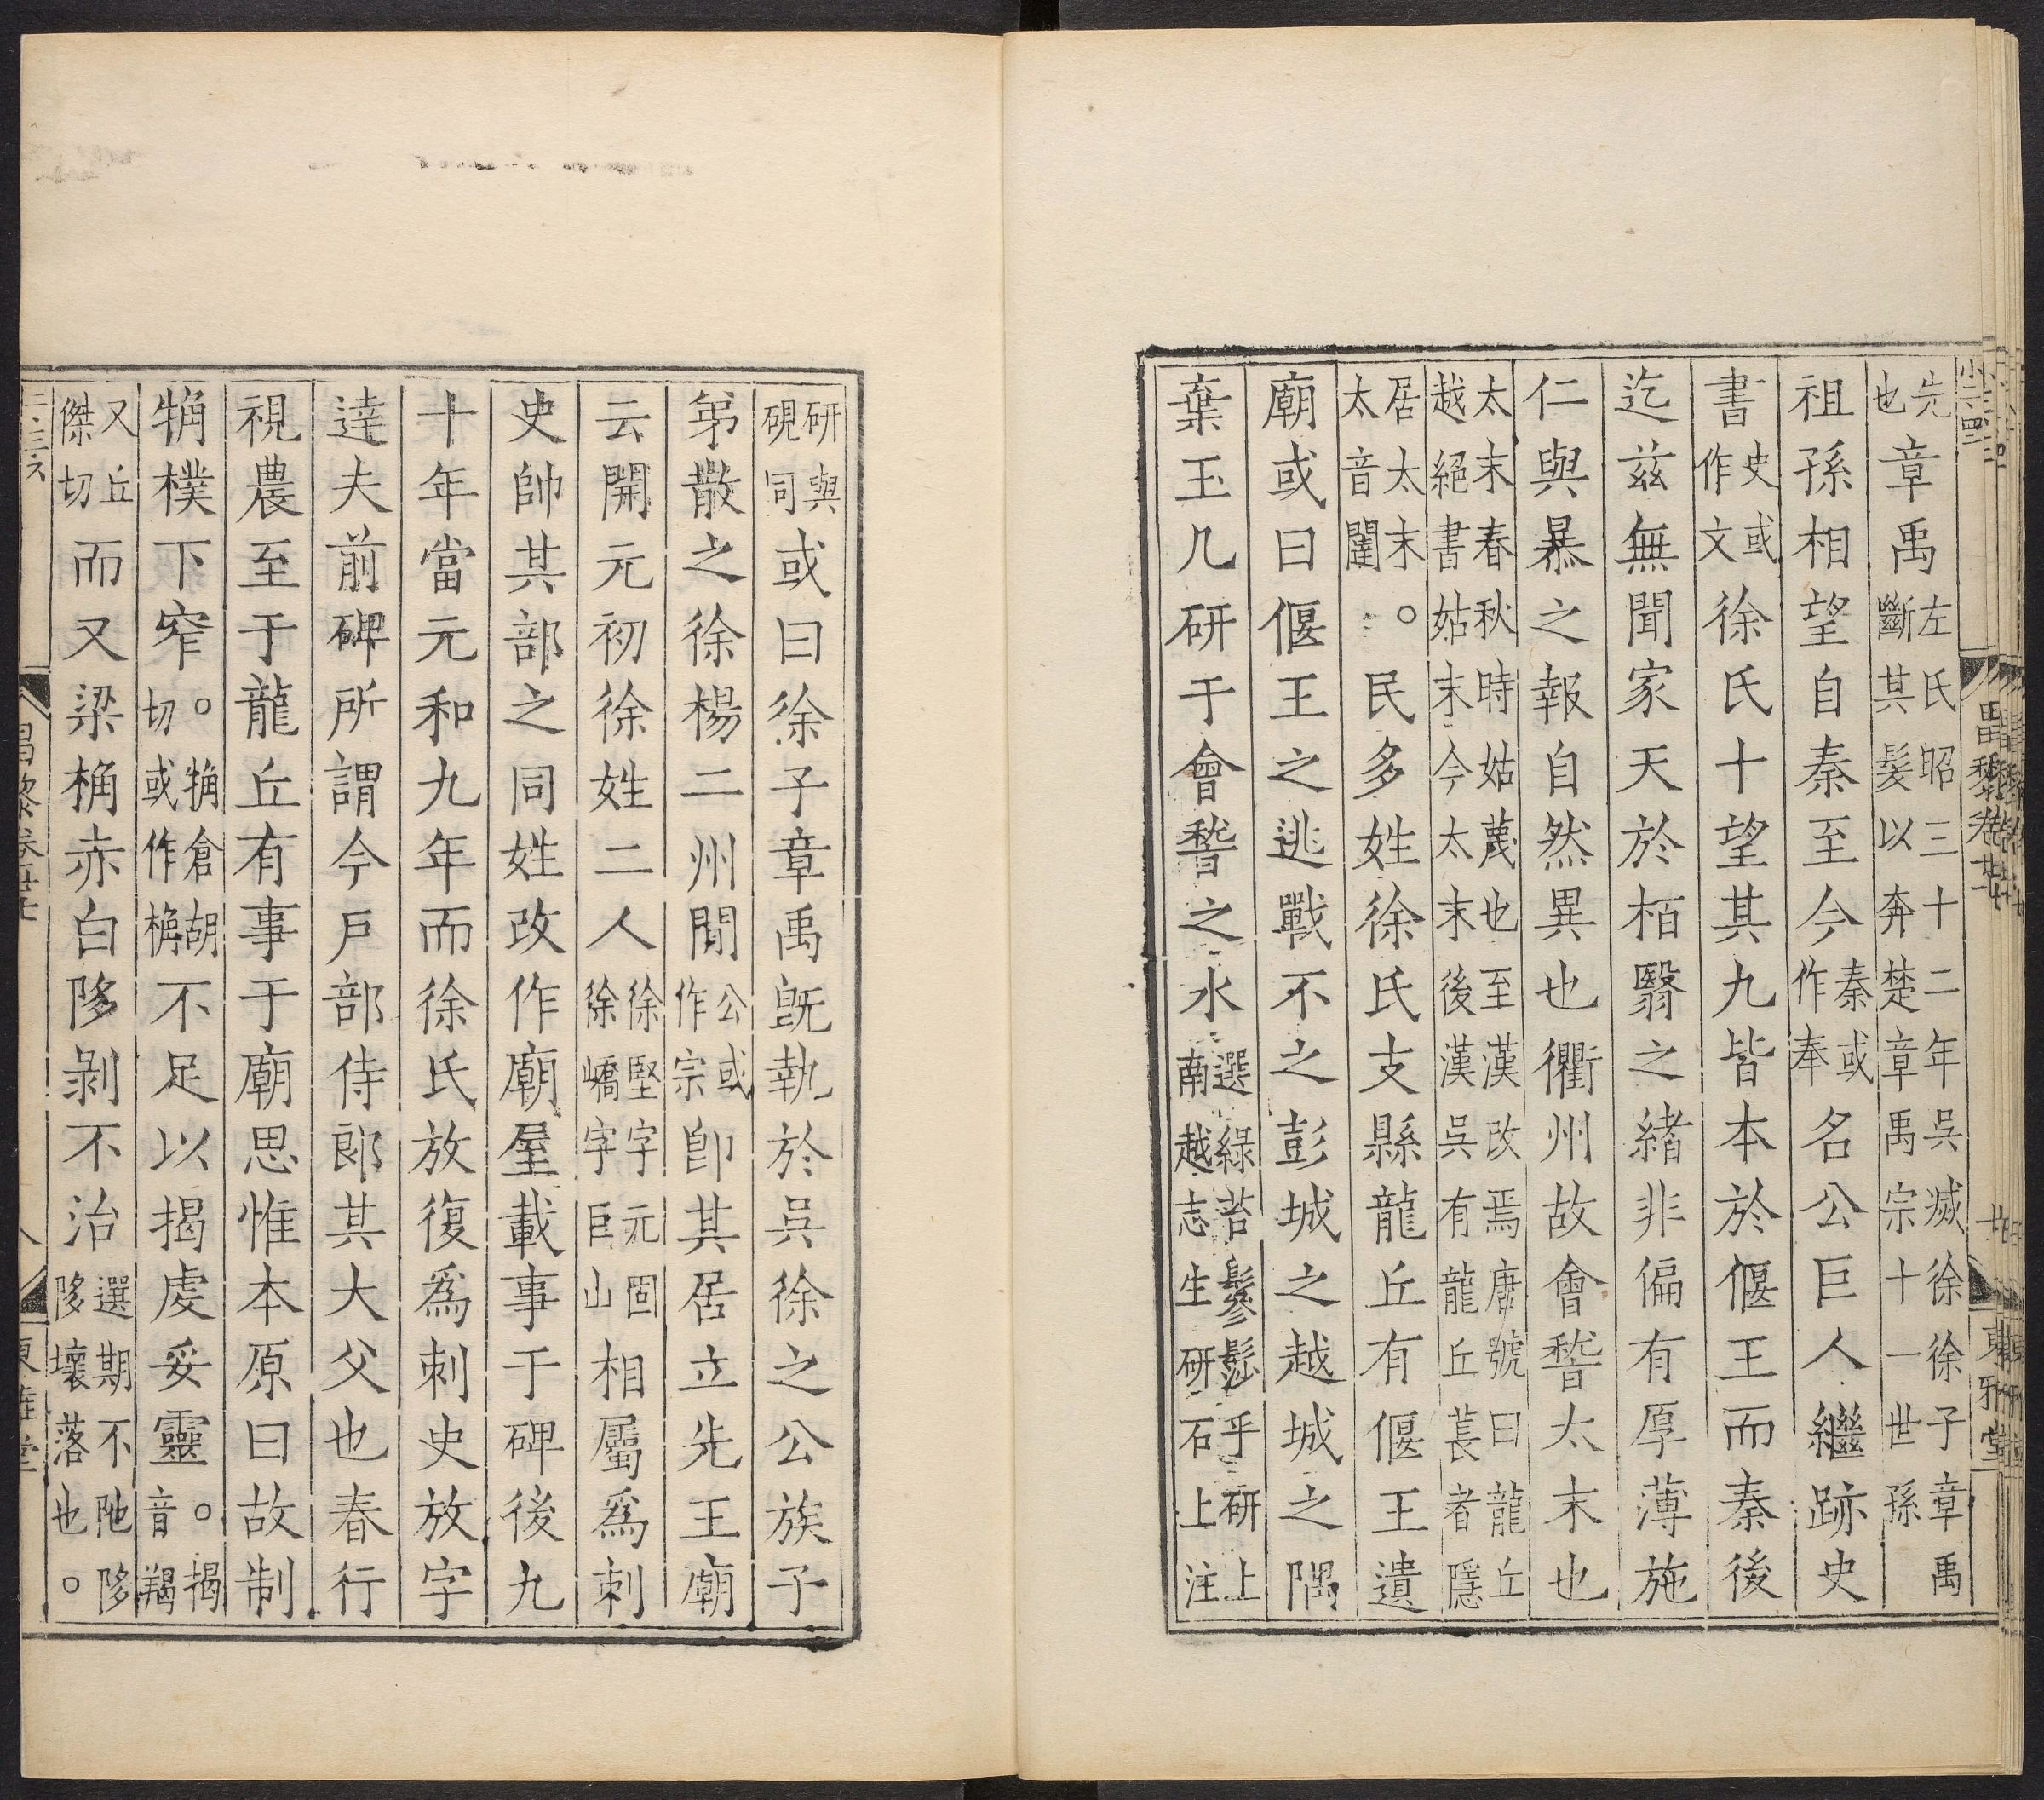 先也章禹左氏昭三十二年吳滅徐徐子章禹斷其髮以奔楚章禹宗十一世孫
祖孫相望自秦至今秦或作奉名公巨人繼跡史
書史或作文徐氏十望其九皆本於偃王而秦後
迄茲無聞家天於栢翳之緒非偏有厚薄施
仁與暴之報自然異也衢州故會稽太末也
太末春秋時姑蔑也至漢改焉唐號曰龍丘越絕書姑末今太末後漢吳有龍丘萇者隱
居太末。太音闥民多姓徐氏支縣龍丘有偃王遺
廟或曰偃王之逃戰不之彭城之越城之隅
棄玉几研于會稽之水選綠苔鬖髿乎研上南越志生研石上注
研與硯同或曰徐子章禹旣執於吳徐之公族子
弟散之徐楊二州間公或作宗卽其居立先王廟
云開元初徐姓二人徐堅字元固徐嶠字巨山相屬爲刺
史帥其部之同姓改作廟屋載事于碑後九
十年當元和九年而徐氏放復爲刺史放字
達夫前碑所謂今戶部侍郎其大父也春行
視農至于龍丘有事于廟思惟本原曰故制
觕樸下窄。觕倉胡切或作桷不足以揭虔妥靈。揭音羯
又丘傑切而又梁桷赤白陊剝不治選期不陁陊陊壞落也。
昌黎卷廿七
東雅堂